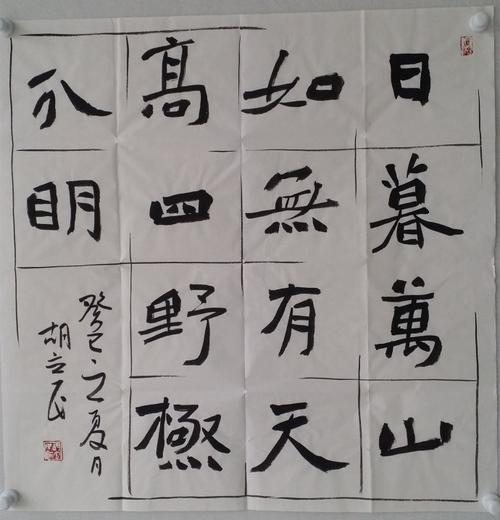 日暮萬山
如無有天
高四野極
分明
癸巳之夏月
胡立民